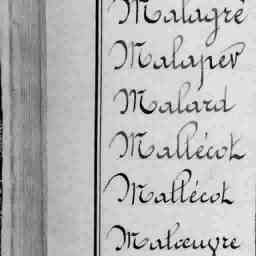 Malagré
Malaper
Malard
Mallécot
Mallécot
Malœuvre